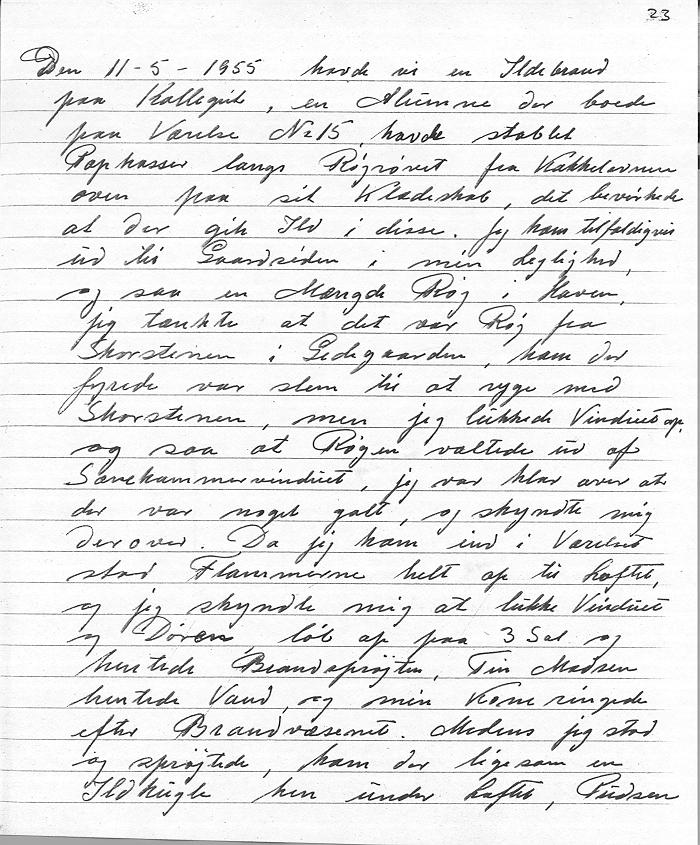 23
Den 11-5-1955 havde vi en Ildebrand
paa Kollegiet, en Alumne der boede
paa Værelse No 15, havde stablet
Papkasser langs Røgrøret fra Kakkelovnen
oven paa sit Klædeskab, det bevirkede
at der gik Ild i disse. Jeg kom tilfældigvis
ud til Gaardsiden i min Lejlighed,
og saa en Mængde Røg i Haven,
jeg tænkte at det var Røg fra
Skorstenen i Gedegaarden, ham der
fyrede var slem til at ryge med
Skorstenen, men jeg lukkede Vinduet op,
og saa at Røgen væltede ud af
Sovekammervinduet, jeg var klar over at
der var noget galt, og skyndte mig
derover. Da jeg kom ind i Værelset
stod Flammerne helt op til Loftet,
og jeg skyndte mig at lukke Vinduet
og Døren, løb op paa 3 Sal og
hentede Brandsprøjten, Madsen
hentede Vand, og min Kone ringede
efter Brandvæsenet. Medens jeg stod
og sprøjtede, kom der ligesom en
Ildkugle hen under Loftet, Pudsen